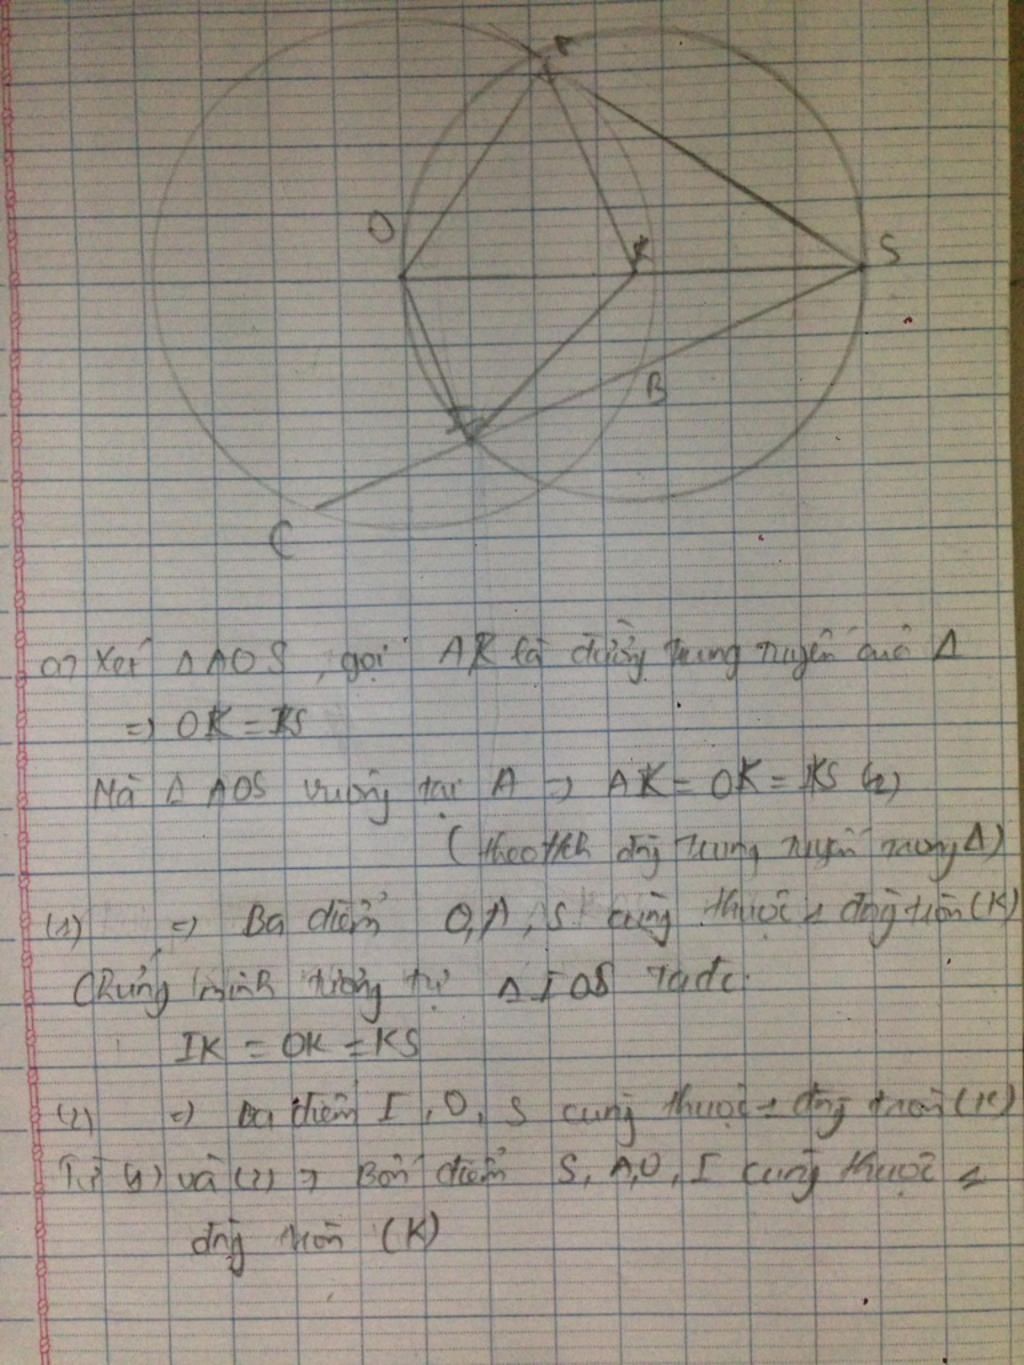 A
O
K
S
B
I
C
a) Xét Δ AOS, gọi AK là đường trung tuyến của Δ
=> OK = KS
Mà Δ AOS vuông tại A => AK = OK = KS (2)
( theo t/ch đng trung tuyến trong Δ)
(1) => Ba điểm O, A, S cùng thuộc 1 đng tròn (K)
Chứng minh tương tự Δ IOS ta đc
IK = OK = KS
(2) => Ba điểm I, O, S cùng thuộc 1 đng tròn (K)
Từ (1) và (2) => Bốn điểm S, A, O, I cùng thuộc 1
đng tròn (K)